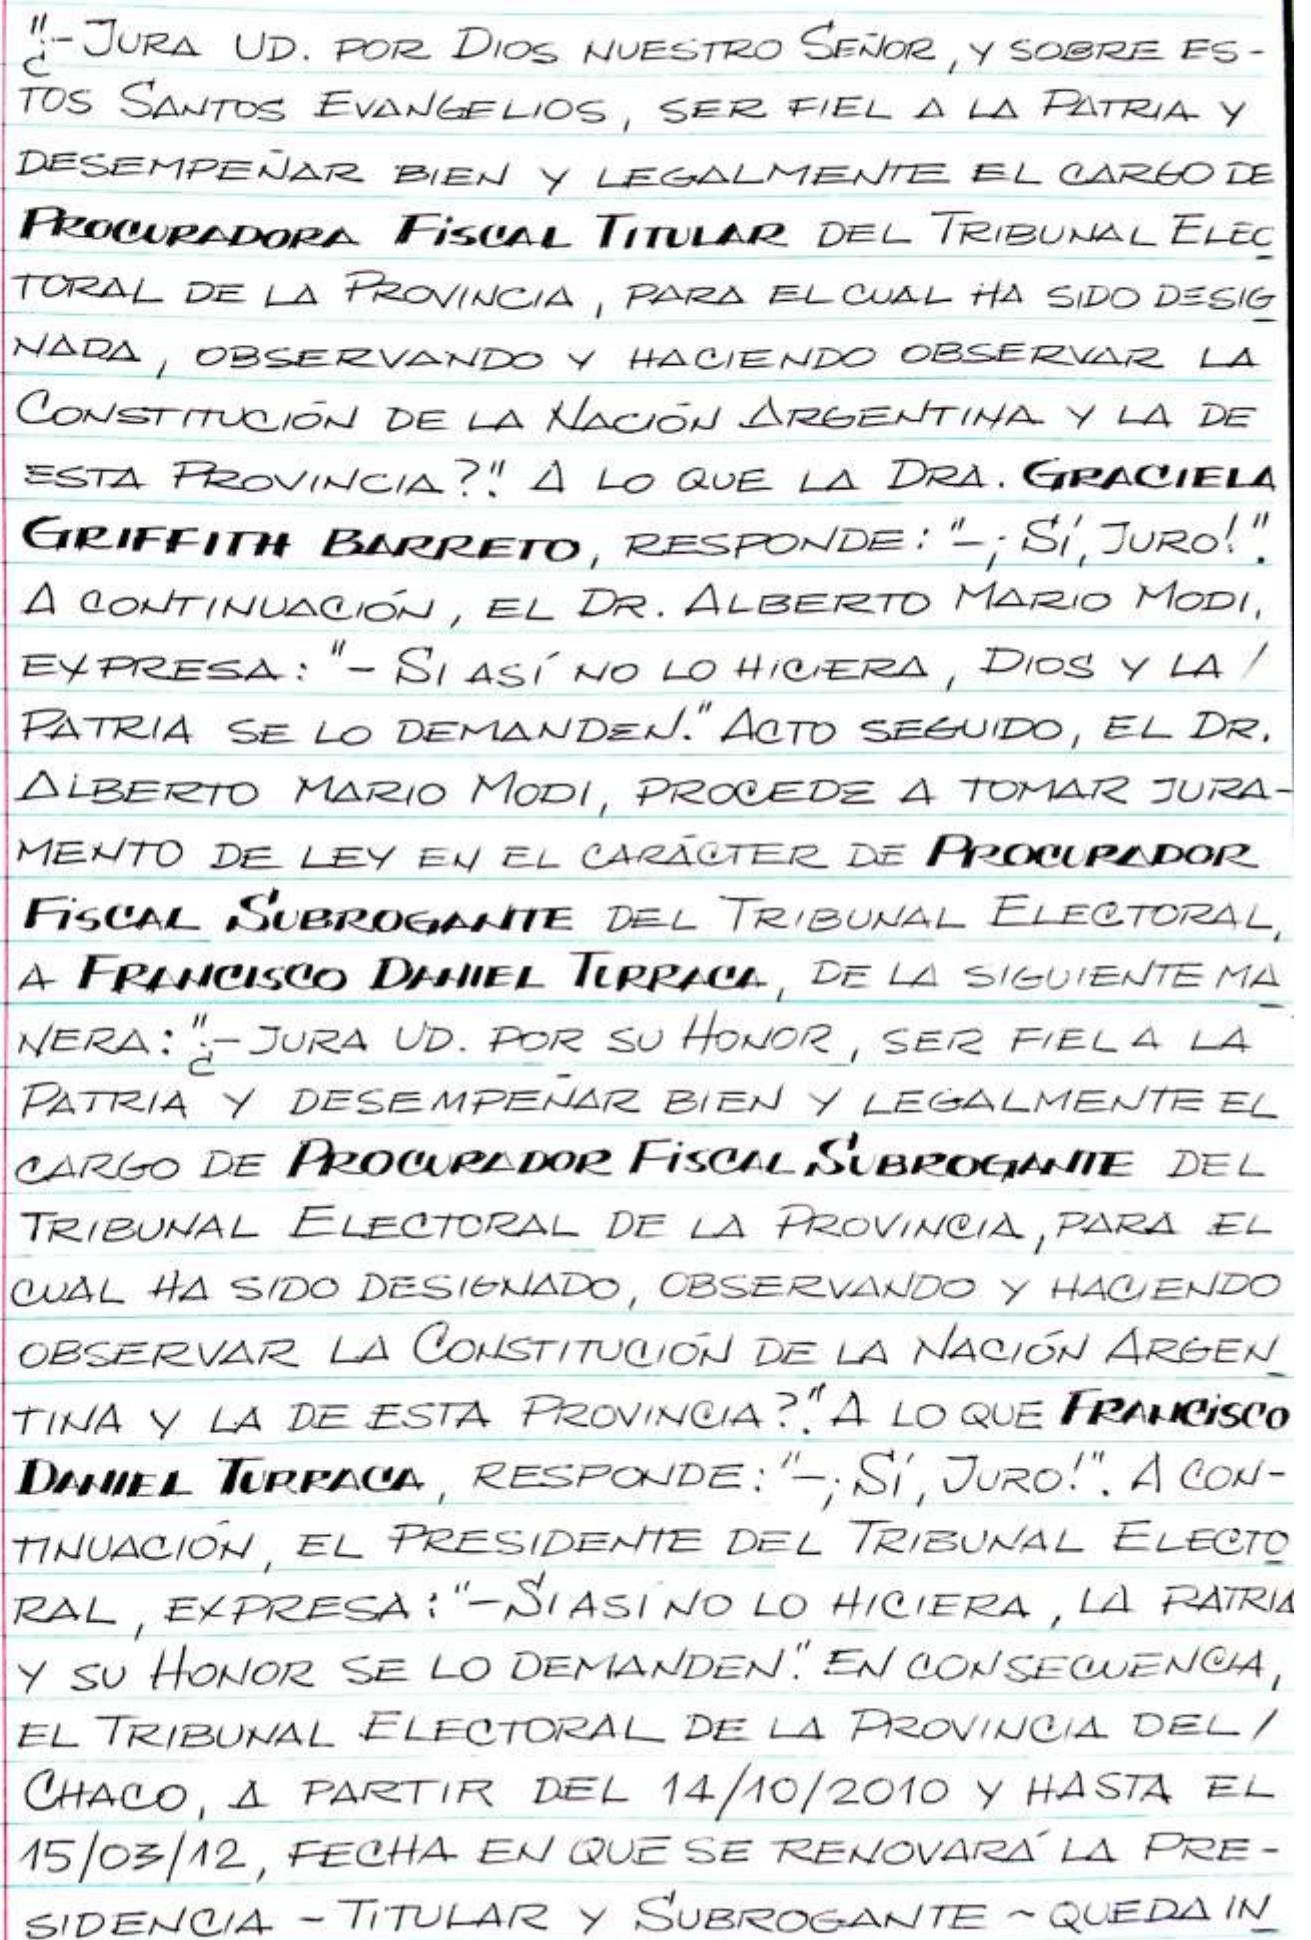 "¿-JURA UD. POR DIOS NUESTRO SEÑOR, Y SOBRE ES-
TOS SANTOS EVANGELIOS, SER FIEL A LA PATRIA Y
DESEMPEÑAR BIEN Y LEGALMENTE EL CARGO DE
PROCURADORA FISCAL TITULAR DEL TRIBUNAL ELEC
TORAL DE LA PROVINCIA, PARA EL CUAL HA SIDO DESIG
NADA, OBSERVANDO Y HACIENDO OBSERVAR LA
CONSTITUCIÓN DE LA NACIÓN ARGENTINA Y LA DE
ESTA PROVINCIA?". A LO QUE LA DRA. GRACIELA
GRIFFITH BARRETO, RESPONDE: "-¡SÍ, JURO!".
A CONTINUACIÓN, EL DR. ALBERTO MARIO MODI,
EXPRESA: "- SI ASÍ NO LO HICIERA, DIOS Y LA /
PATRIA SE LO DEMANDEN." ACTO SEGUIDO, EL DR.
ALBERTO MARIO MODI, PROCEDE A TOMAR JURA-
MENTO DE LEY EN EL CARÁCTER DE PROCURADOR
FISCAL SUBROGANTE DEL TRIBUNAL ELECTORAL,
A FRANCISCO DANIEL TURRACA, DE LA SIGUIENTE MA
NERA: "¿-JURA UD. POR SU HONOR, SER FIEL A LA
PATRIA Y DESEMPEÑAR BIEN Y LEGALMENTE EL
CARGO DE PROCURADOR FISCAL SUBROGANTE DEL
TRIBUNAL ELECTORAL DE LA PROVINCIA, PARA EL
CUAL HA SIDO DESIGNADO, OBSERVANDO Y HACIENDO
OBSERVAR LA CONSTITUCIÓN DE LA NACIÓN ARGEN
TINA Y LA DE ESTA PROVINCIA?". A LO QUE FRANCISCO
DANIEL TURRACA, RESPONDE: "-¡SÍ, JURO!". A CON-
TINUACIÓN, EL PRESIDENTE DEL TRIBUNAL ELECTO
RAL, EXPRESA: "-SI ASI NO LO HICIERA, LA PATRIA
Y SU HONOR SE LO DEMANDEN." EN CONSECUENCIA,
EL TRIBUNAL ELECTORAL DE LA PROVINCIA DEL /
CHACO, A PARTIR DEL 14/10/2010 Y HASTA EL
15/03/12, FECHA EN QUE SE RENOVARÁ LA PRE-
SIDENCIA - TITULAR Y SUBROGANTE - QUEDA IN